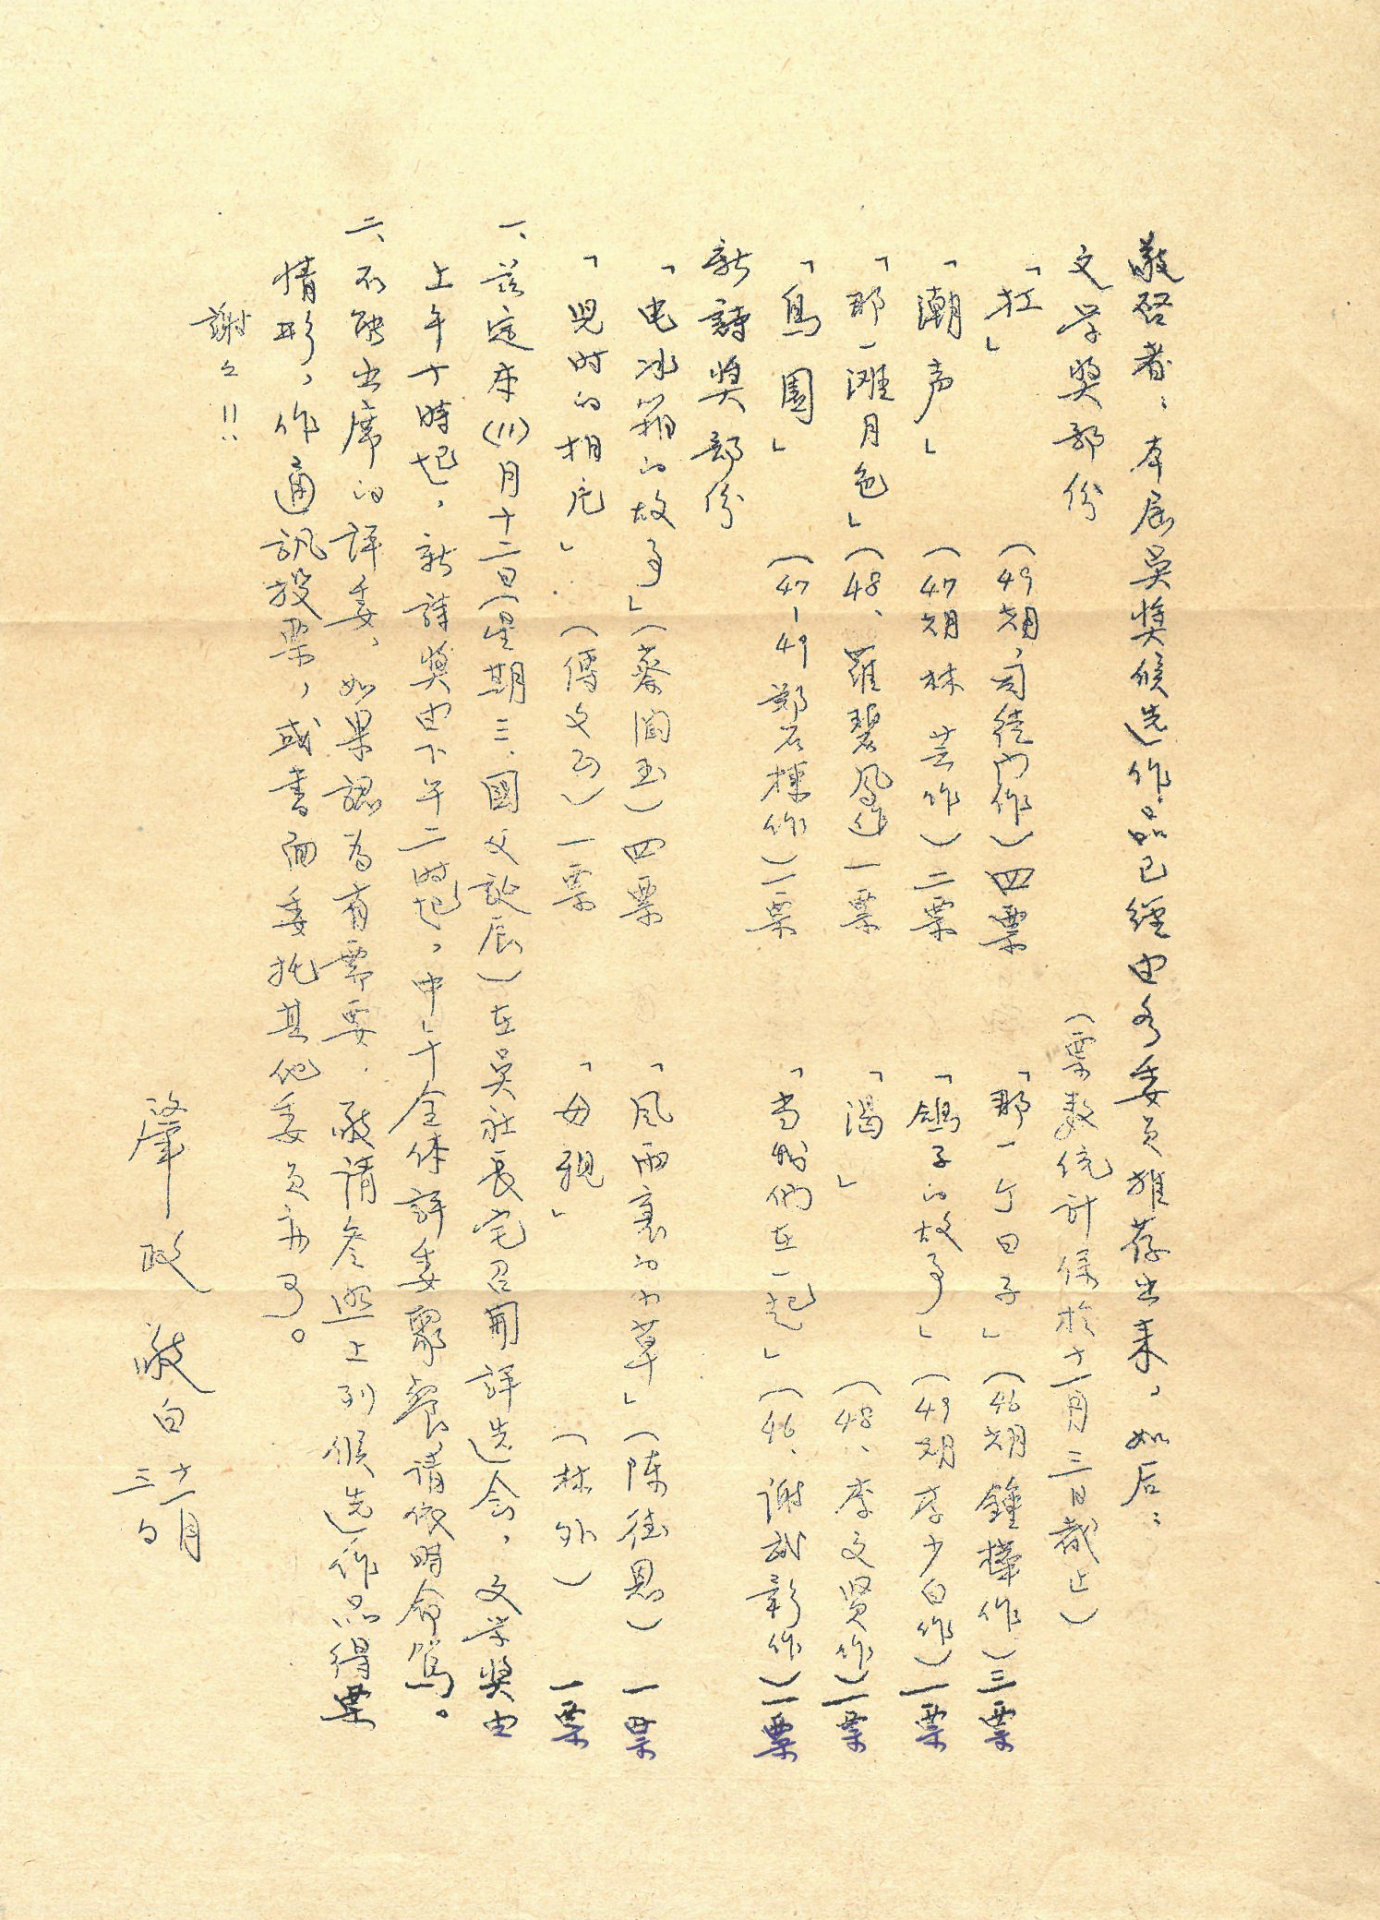 敬啓者：本屆吳奬候选作品已經由各委员推荐出来，如后：
文学奬部份
（票数統計係於十一月三日截止）
「狂」（49期，司徒门作）四票
「那一个日子」（46期 鍾樺作）三票
「潮声」（47期 林芸作）二票
「鴿子的故事」（49期 李少白作）一票
「那一滩月色」（48、羅碧鳳作 一票
「渴」（48、李文贤作）一票
「鳥園」（47-49 鄭石棟作）一票
「当我們在一起」（46、谢武彰作）一票
新詩奬部份
「电冰箱的故事」（蔡 玉）四票
「风雨裏的小草」（陳 恩）一票
「児时的相片」（傅文正）一票
「母親」（林外）一票
一、茲定本(11)月十二日（星期三、國父誕辰）在吳社長宅召開評选会，文学奬由
上午十時起，新詩奬由下午二时起，中午全体評委聚餐，請依時命駕。
二、不能出席的評委、如果認為有需要，敬請參照上列候选作品得票
情形，作通訊投票，或書面委托其他委员亦可。
謝々!!
肇政 敬白 十一月
三日